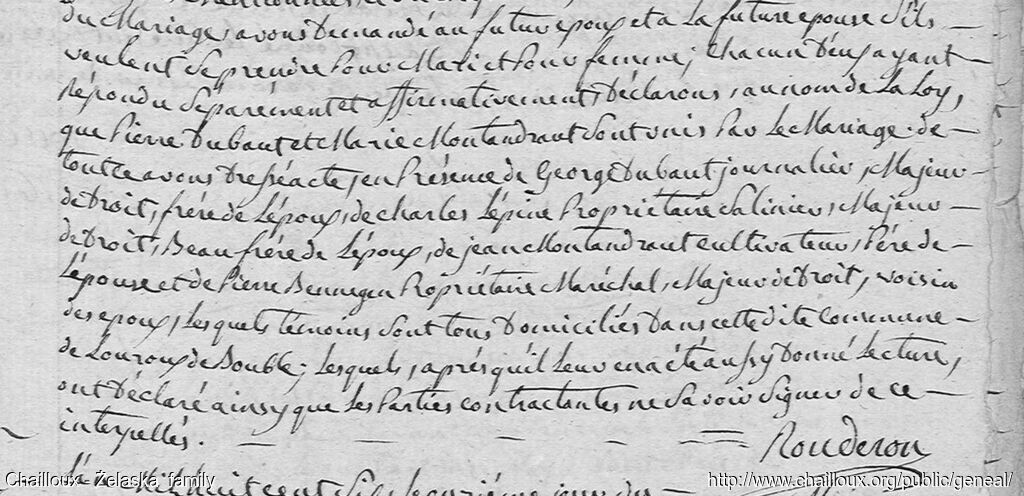 du Mariage, avons Demandé au futur epoux et a La future epouse s'ils
veulent se prendre Pour Mari et Pour femme; Chacun D'eux ayant
Répondu Séparément et affirmativement, Déclarons, au nom de La Loy,
que Pierre Dubaut et Marie Montandraut Sont unis Par Le Mariage. de
tout ce avons Dressé acte, en Présence de George Dubaut journalier, Majeur
de Droit, frére de L'époux, de Charles Lépine Propriétaire Salinier, Majeur
de Droit, Beau frére de L'époux, de jean Montandraut cultivateur, Pére de
L'épouse et de Pierre Bennegen Propriétaire Maréchal, Majeur de Droit, voisin
des epoux, Lesquels témoins Sont tous Domiciliés Dans cette dite commune
de Louroux de Bouble; Lesquels, aprés qu'il Leur en a été aussy Donné Lecture,
ont Déclaré ainsy que Les Parties contractantes ne Savoir Signer de ce
interpellés.
Rouderon
L'an Mil huit cent Six Le onziéme jour du
Chailloux - Żelaska family
http://www.chailloux.org/public/geneal/